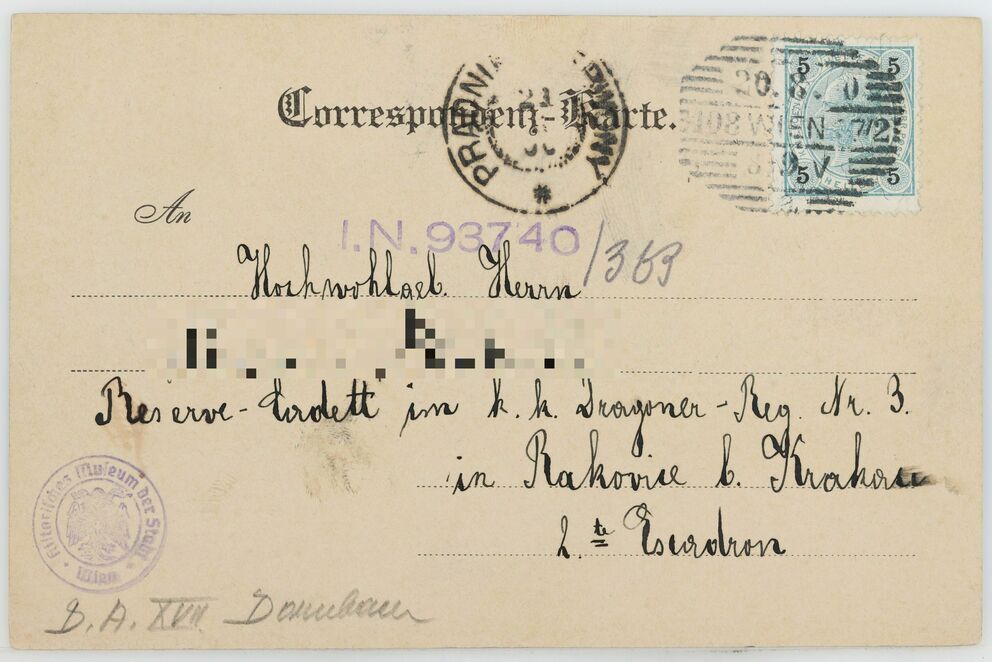 Correspondenz-Karte.
PRADNIK
20.8.0
WIEN 7/2
8-9.V
5 5
5 5
An
I.N. 93740/363
Hochwohlgeb. Herrn
Reserve-Cadett im k. k. Dragoner-Reg. Nr. 3.
in Rakovice b. Krakau
2.te Escadron
Historisches Museum der Stadt Wien
D. A. XVII Dornbach